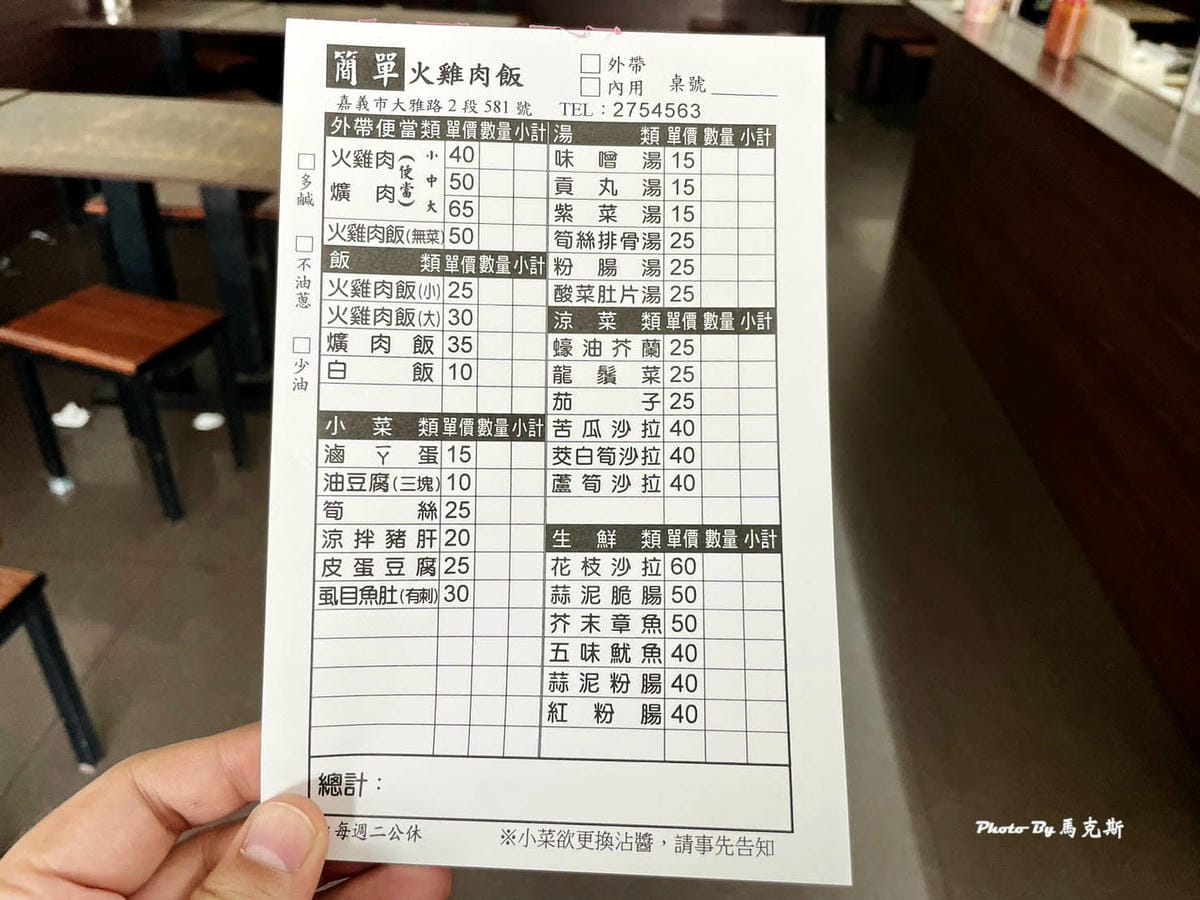 簡單火雞肉飯
□外帶
□內用 桌號
嘉義市大雅路2段581號 TEL：2754563
□多鹹
□不油蔥
□少油
外帶便當類 單價 數量 小計
火雞肉
爌肉
(便當)
小 40
中 50
大 65
火雞肉飯(無菜) 50
飯類 單價 數量 小計
火雞肉飯(小) 25
火雞肉飯(大) 30
爌肉飯 35
白飯 10
小菜類 單價 數量 小計
滷ㄚ蛋 15
油豆腐(三塊) 10
筍絲 25
涼拌豬肝 20
皮蛋豆腐 25
虱目魚肚(有刺) 30
湯類 單價 數量 小計
味噌湯 15
貢丸湯 15
紫菜湯 15
筍絲排骨湯 25
粉腸湯 25
酸菜肚片湯 25
涼菜類 單價 數量 小計
蠔油芥蘭 25
龍鬚菜 25
茄子 25
苦瓜沙拉 40
茭白筍沙拉 40
蘆筍沙拉 40
生鮮類 單價 數量 小計
花枝沙拉 60
蒜泥脆腸 50
芥末章魚 50
五味魷魚 40
蒜泥粉腸 40
紅粉腸 40
總計：
每週二公休
※小菜欲更換沾醬，請事先告知
Photo By 馬克斯